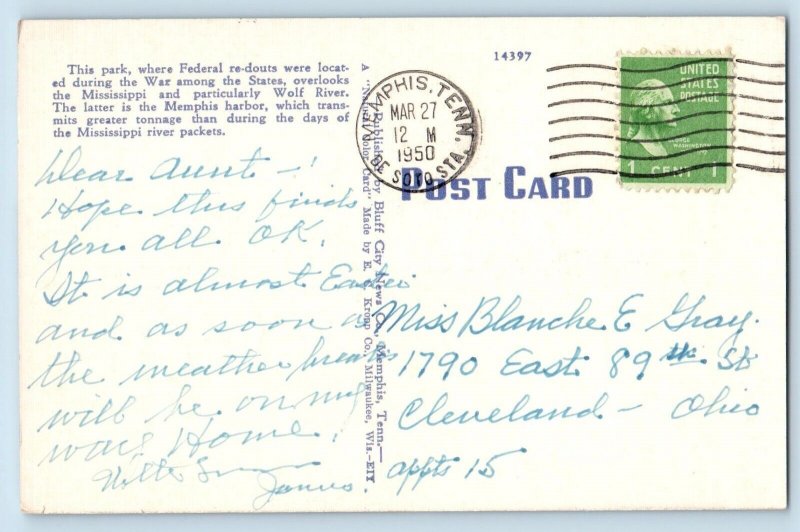 This park, where Federal re-douts were locat-
ed during the War among the States, overlooks
the Mississippi and particularly Wolf River.
The latter is the Memphis harbor, which trans-
mits greater tonnage than during the days of
the Mississippi river packets.
14397
MEMPHIS, TENN.
MAR 27
12 M
1950
DE SOTO STA.
UNITED
STATES
POSTAGE
GEORGE
WASHINGTON
1 CENT 1
POST CARD
Published by Bluff City News Co., Memphis, Tenn.—
A "Natural Color Card" Made by E. C. Kropp Co., Milwaukee, Wis.—EIY
Dear Aunt—!
Hope this finds
you all OK.
It is almost Easter
and as soon as
the weather breaks
will be on my
way Home.
James.
Miss Blanche E Gray.
1790 East 89th St
Cleveland — Ohio
appts 15